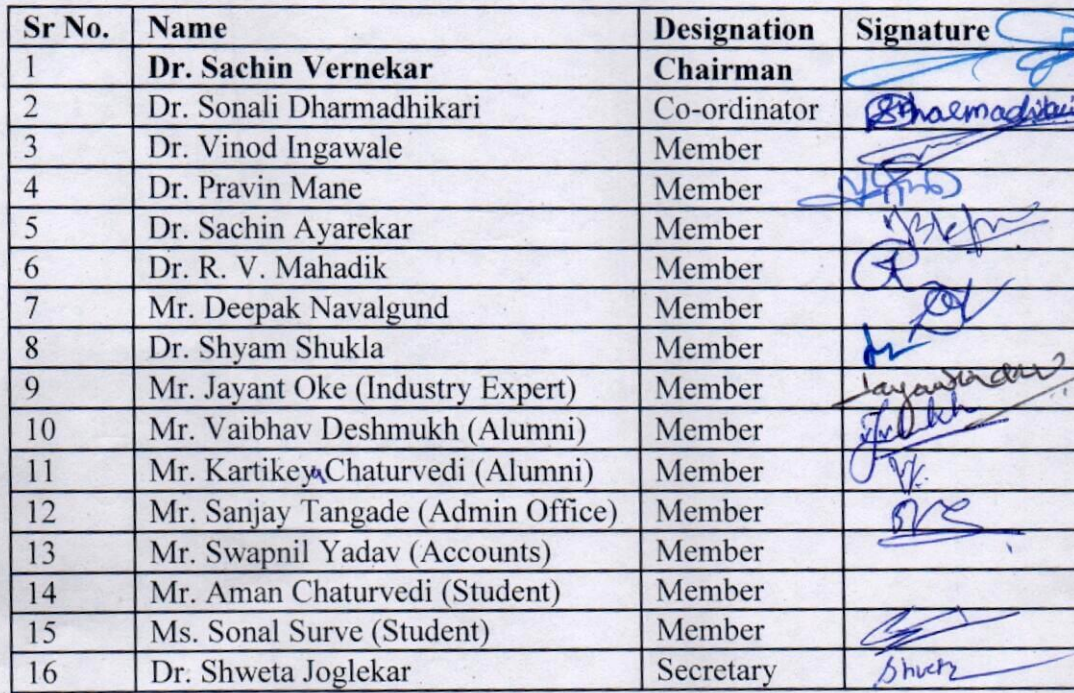 Sr No. Name Designation Signature
1 Dr. Sachin Vernekar Chairman
2 Dr. Sonali Dharmadhikari Co-ordinator
3 Dr. Vinod Ingawale Member
4 Dr. Pravin Mane Member
5 Dr. Sachin Ayarekar Member
6 Dr. R. V. Mahadik Member
7 Mr. Deepak Navalgund Member
8 Dr. Shyam Shukla Member
9 Mr. Jayant Oke (Industry Expert) Member
10 Mr. Vaibhav Deshmukh (Alumni) Member
11 Mr. Kartikeya Chaturvedi (Alumni) Member
12 Mr. Sanjay Tangade (Admin Office) Member
13 Mr. Swapnil Yadav (Accounts) Member
14 Mr. Aman Chaturvedi (Student) Member
15 Ms. Sonal Surve (Student) Member
16 Dr. Shweta Joglekar Secretary